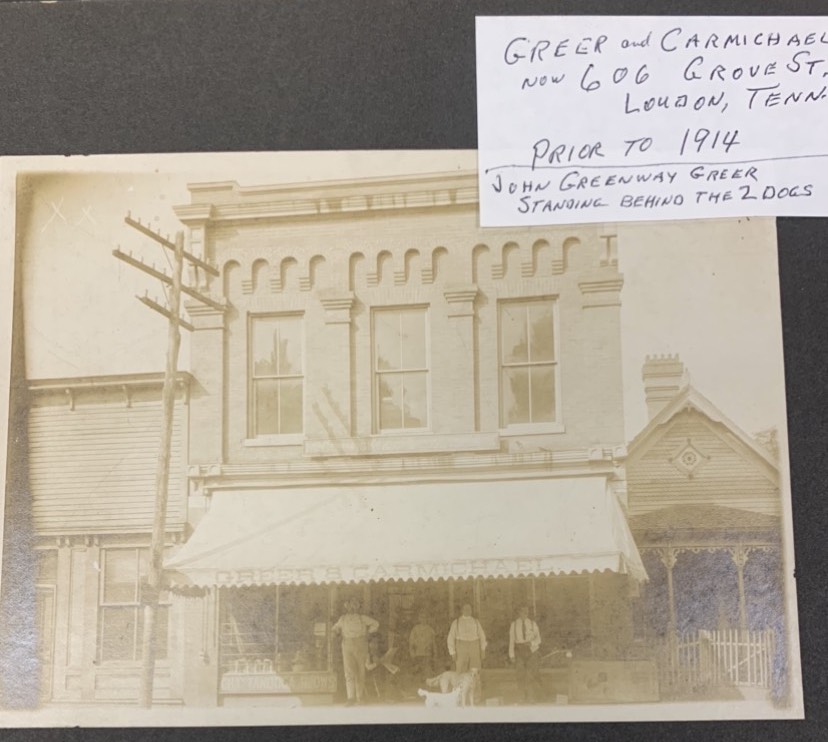 GREER and CARMICHAEL
NOW 606 GROVE ST.
LOUDON, TENN.
PRIOR TO 1914
JOHN GREENWAY GREER
STANDING BEHIND THE 2 DOGS
GREER & CARMICHAEL.